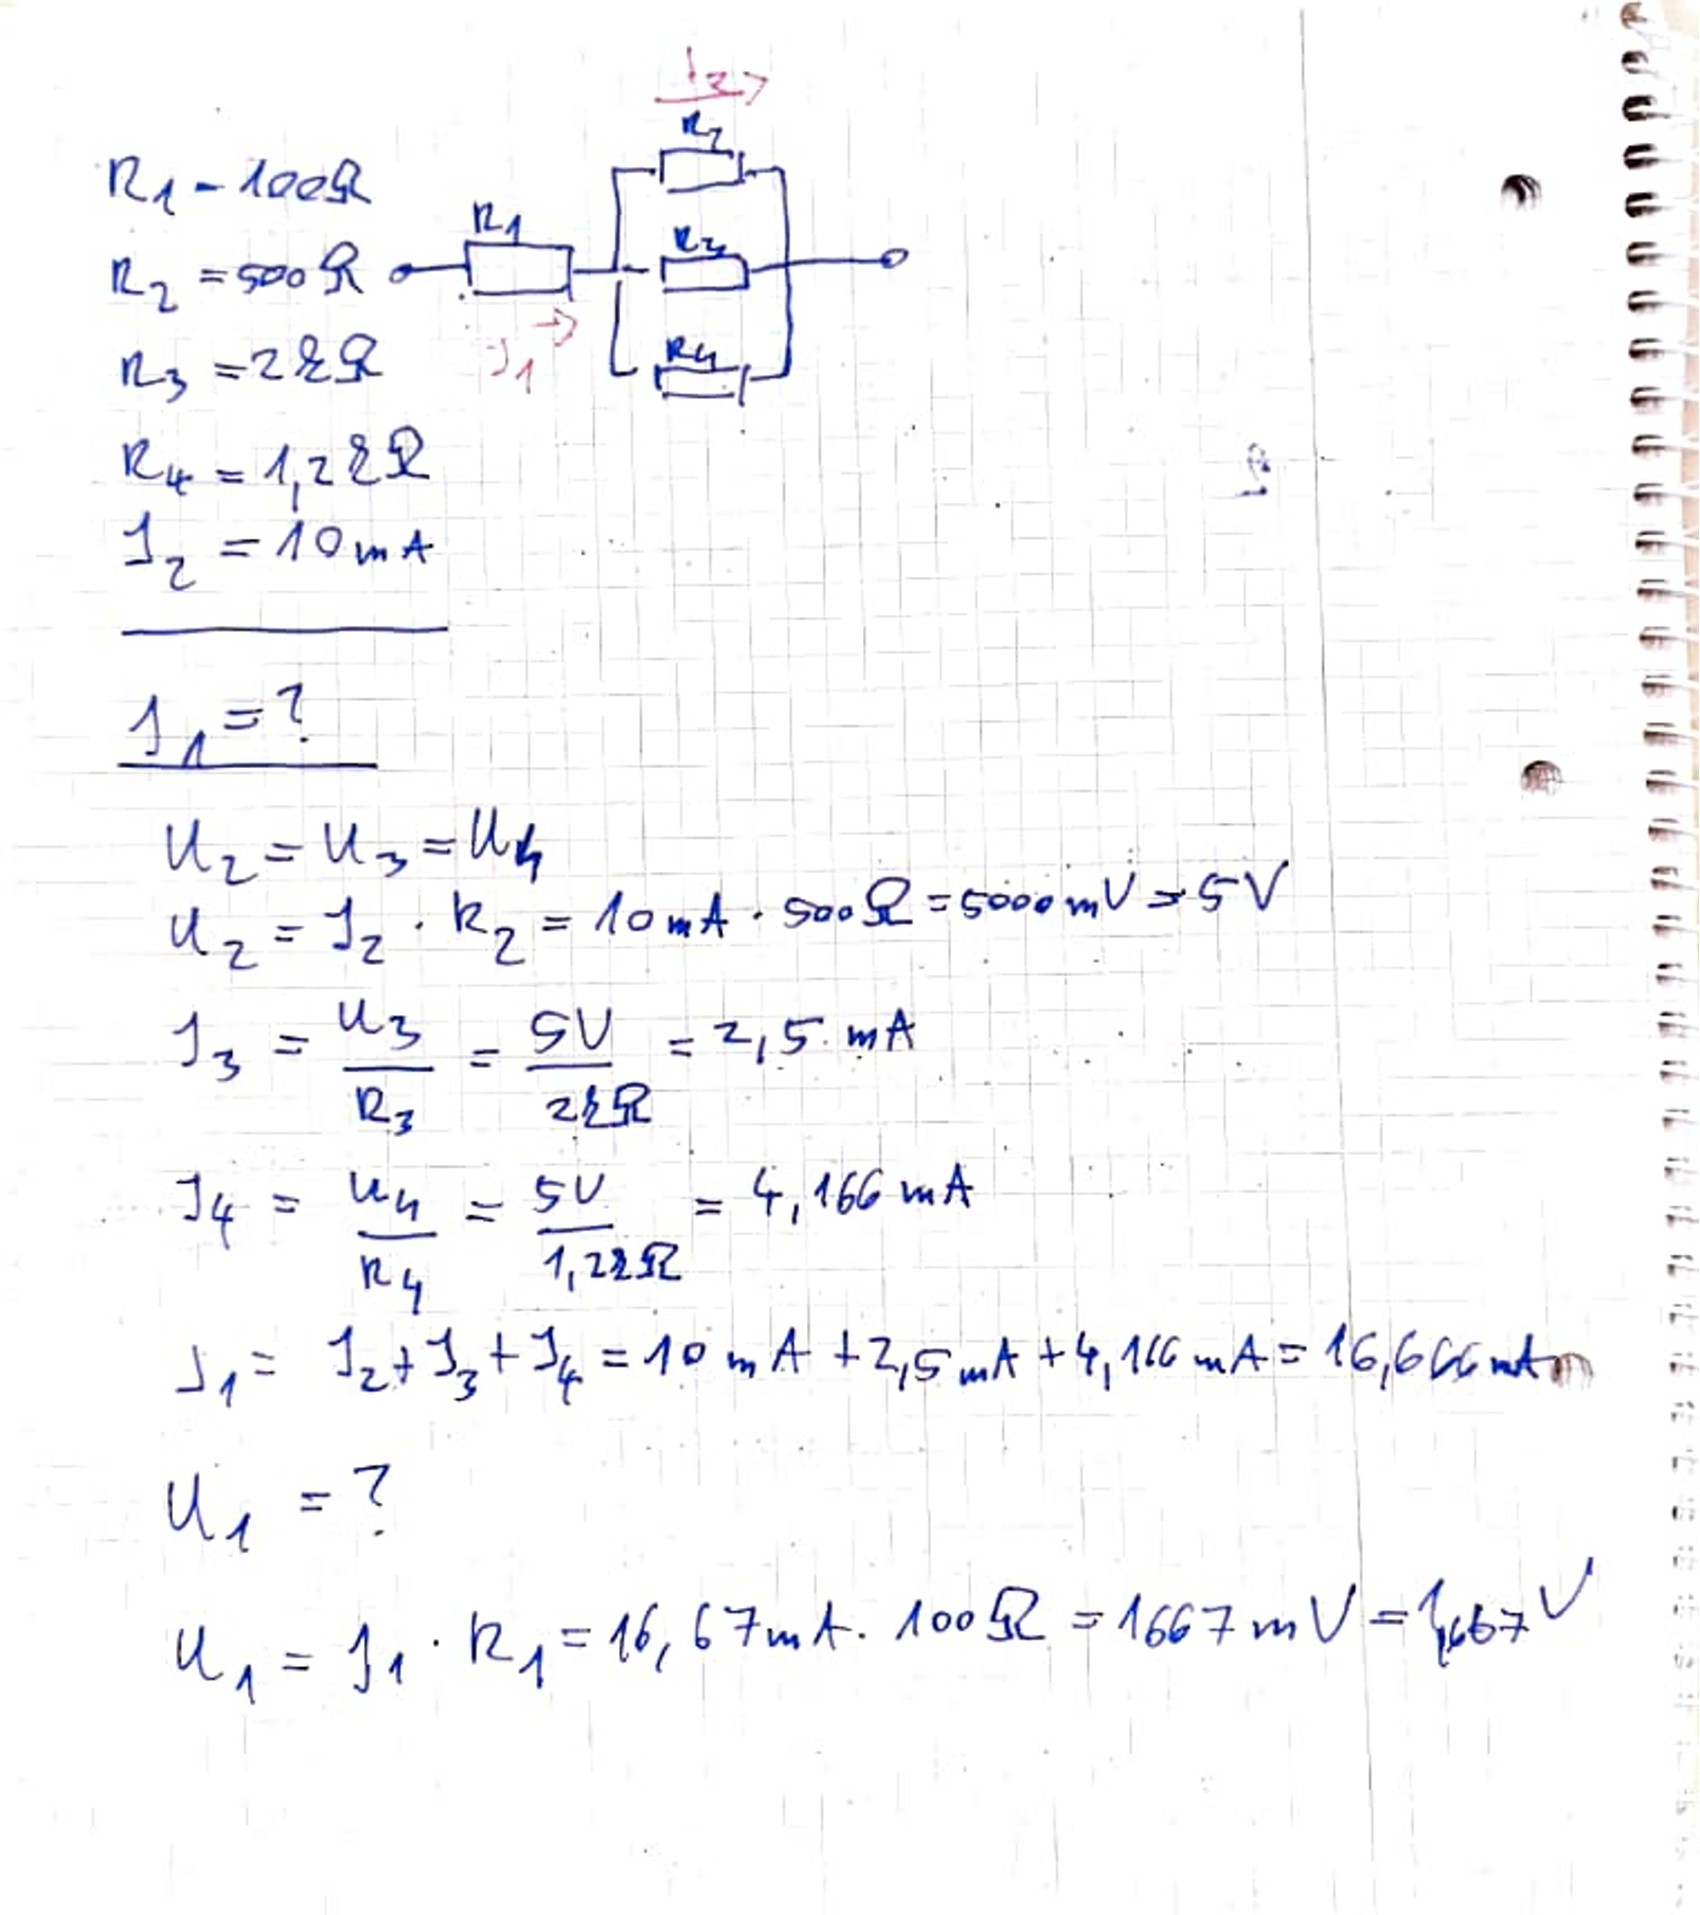 I2
R2
R1 - 100Ω
R1
R2 = 500Ω
R3
I1
R3 = 2kΩ
R4
R4 = 1,2kΩ
I2 = 10mA
I1 = ?
U2 = U3 = U4
U2 = I2 · R2 = 10mA · 500Ω = 5000mV = 5V
I3 = U3/R3 = 5V/2kΩ = 2,5 mA
I4 = U4/R4 = 5V/1,2kΩ = 4,166 mA
I1 = I2 + I3 + I4 = 10mA + 2,5mA + 4,166mA = 16,666mA
U1 = ?
U1 = I1 · R1 = 16,67mA · 100Ω = 1667mV = 1,667V